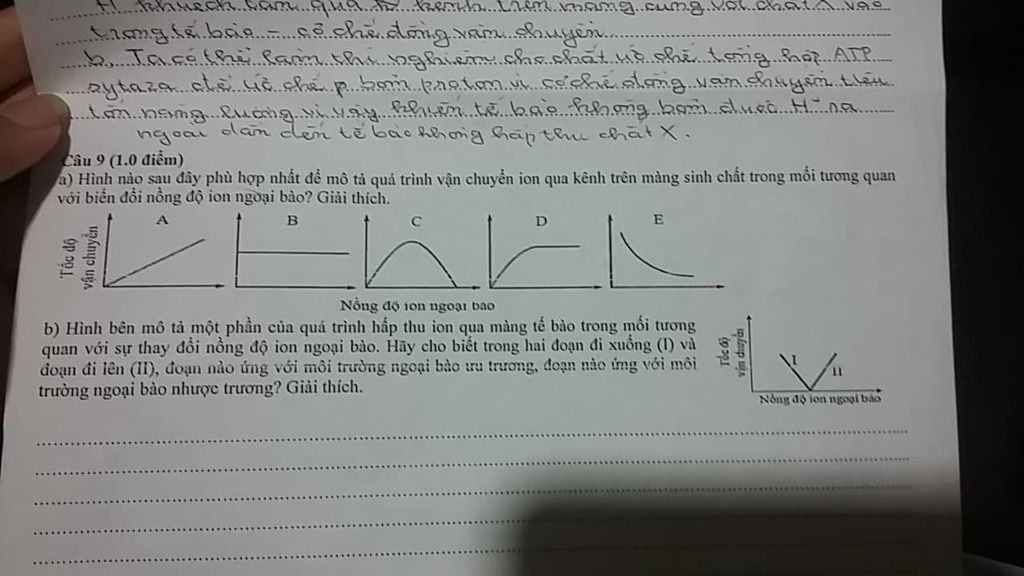 H⁺ khuếch tán qua kênh trên màng cùng với chất X vào
trong tế bào - cơ chế đồng vận chuyển.
b, Ta có thể làm thí nghiệm cho chất ức chế tổng hợp ATP
để ức chế bơm proton vì cơ chế đồng vận chuyển tiêu
tốn năng lượng vì vậy khiến tế bào không bơm được H⁺ ra
ngoài dẫn đến tế bào không hấp thu chất X.
Câu 9 (1.0 điểm)
a) Hình nào sau đây phù hợp nhất để mô tả quá trình vận chuyển ion qua kênh trên màng sinh chất trong mối tương quan
với biến đổi nồng độ ion ngoại bào? Giải thích.
A B C D E
Tốc độ
vận chuyển
Nồng độ ion ngoại bào
b) Hình bên mô tả một phần của quá trình hấp thu ion qua màng tế bào trong mối tương
quan với sự thay đổi nồng độ ion ngoại bào. Hãy cho biết trong hai đoạn đi xuống (I) và
đoạn đi lên (II), đoạn nào ứng với môi trường ngoại bào ưu trương, đoạn nào ứng với môi
trường ngoại bào nhược trương? Giải thích.
Tốc độ
vận chuyển
I
II
Nồng độ ion ngoại bào